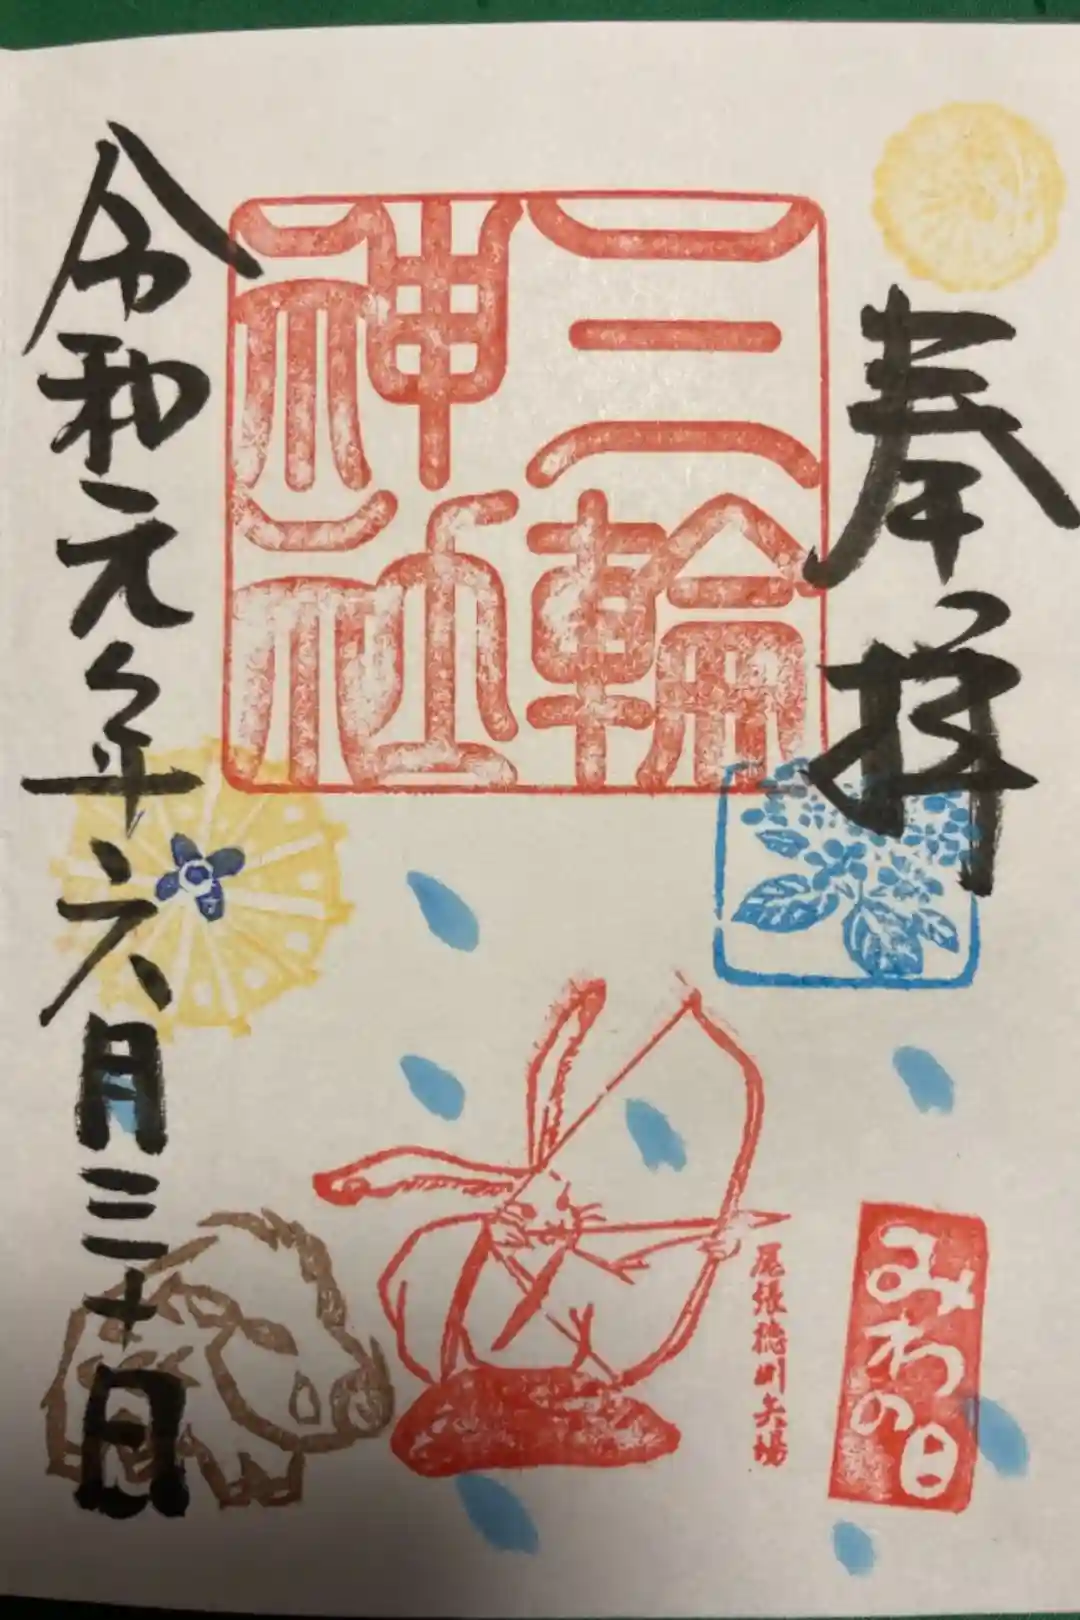 奉拝
三輪
神社
尾張徳川矢場
みわの日
令和元年六月三十日